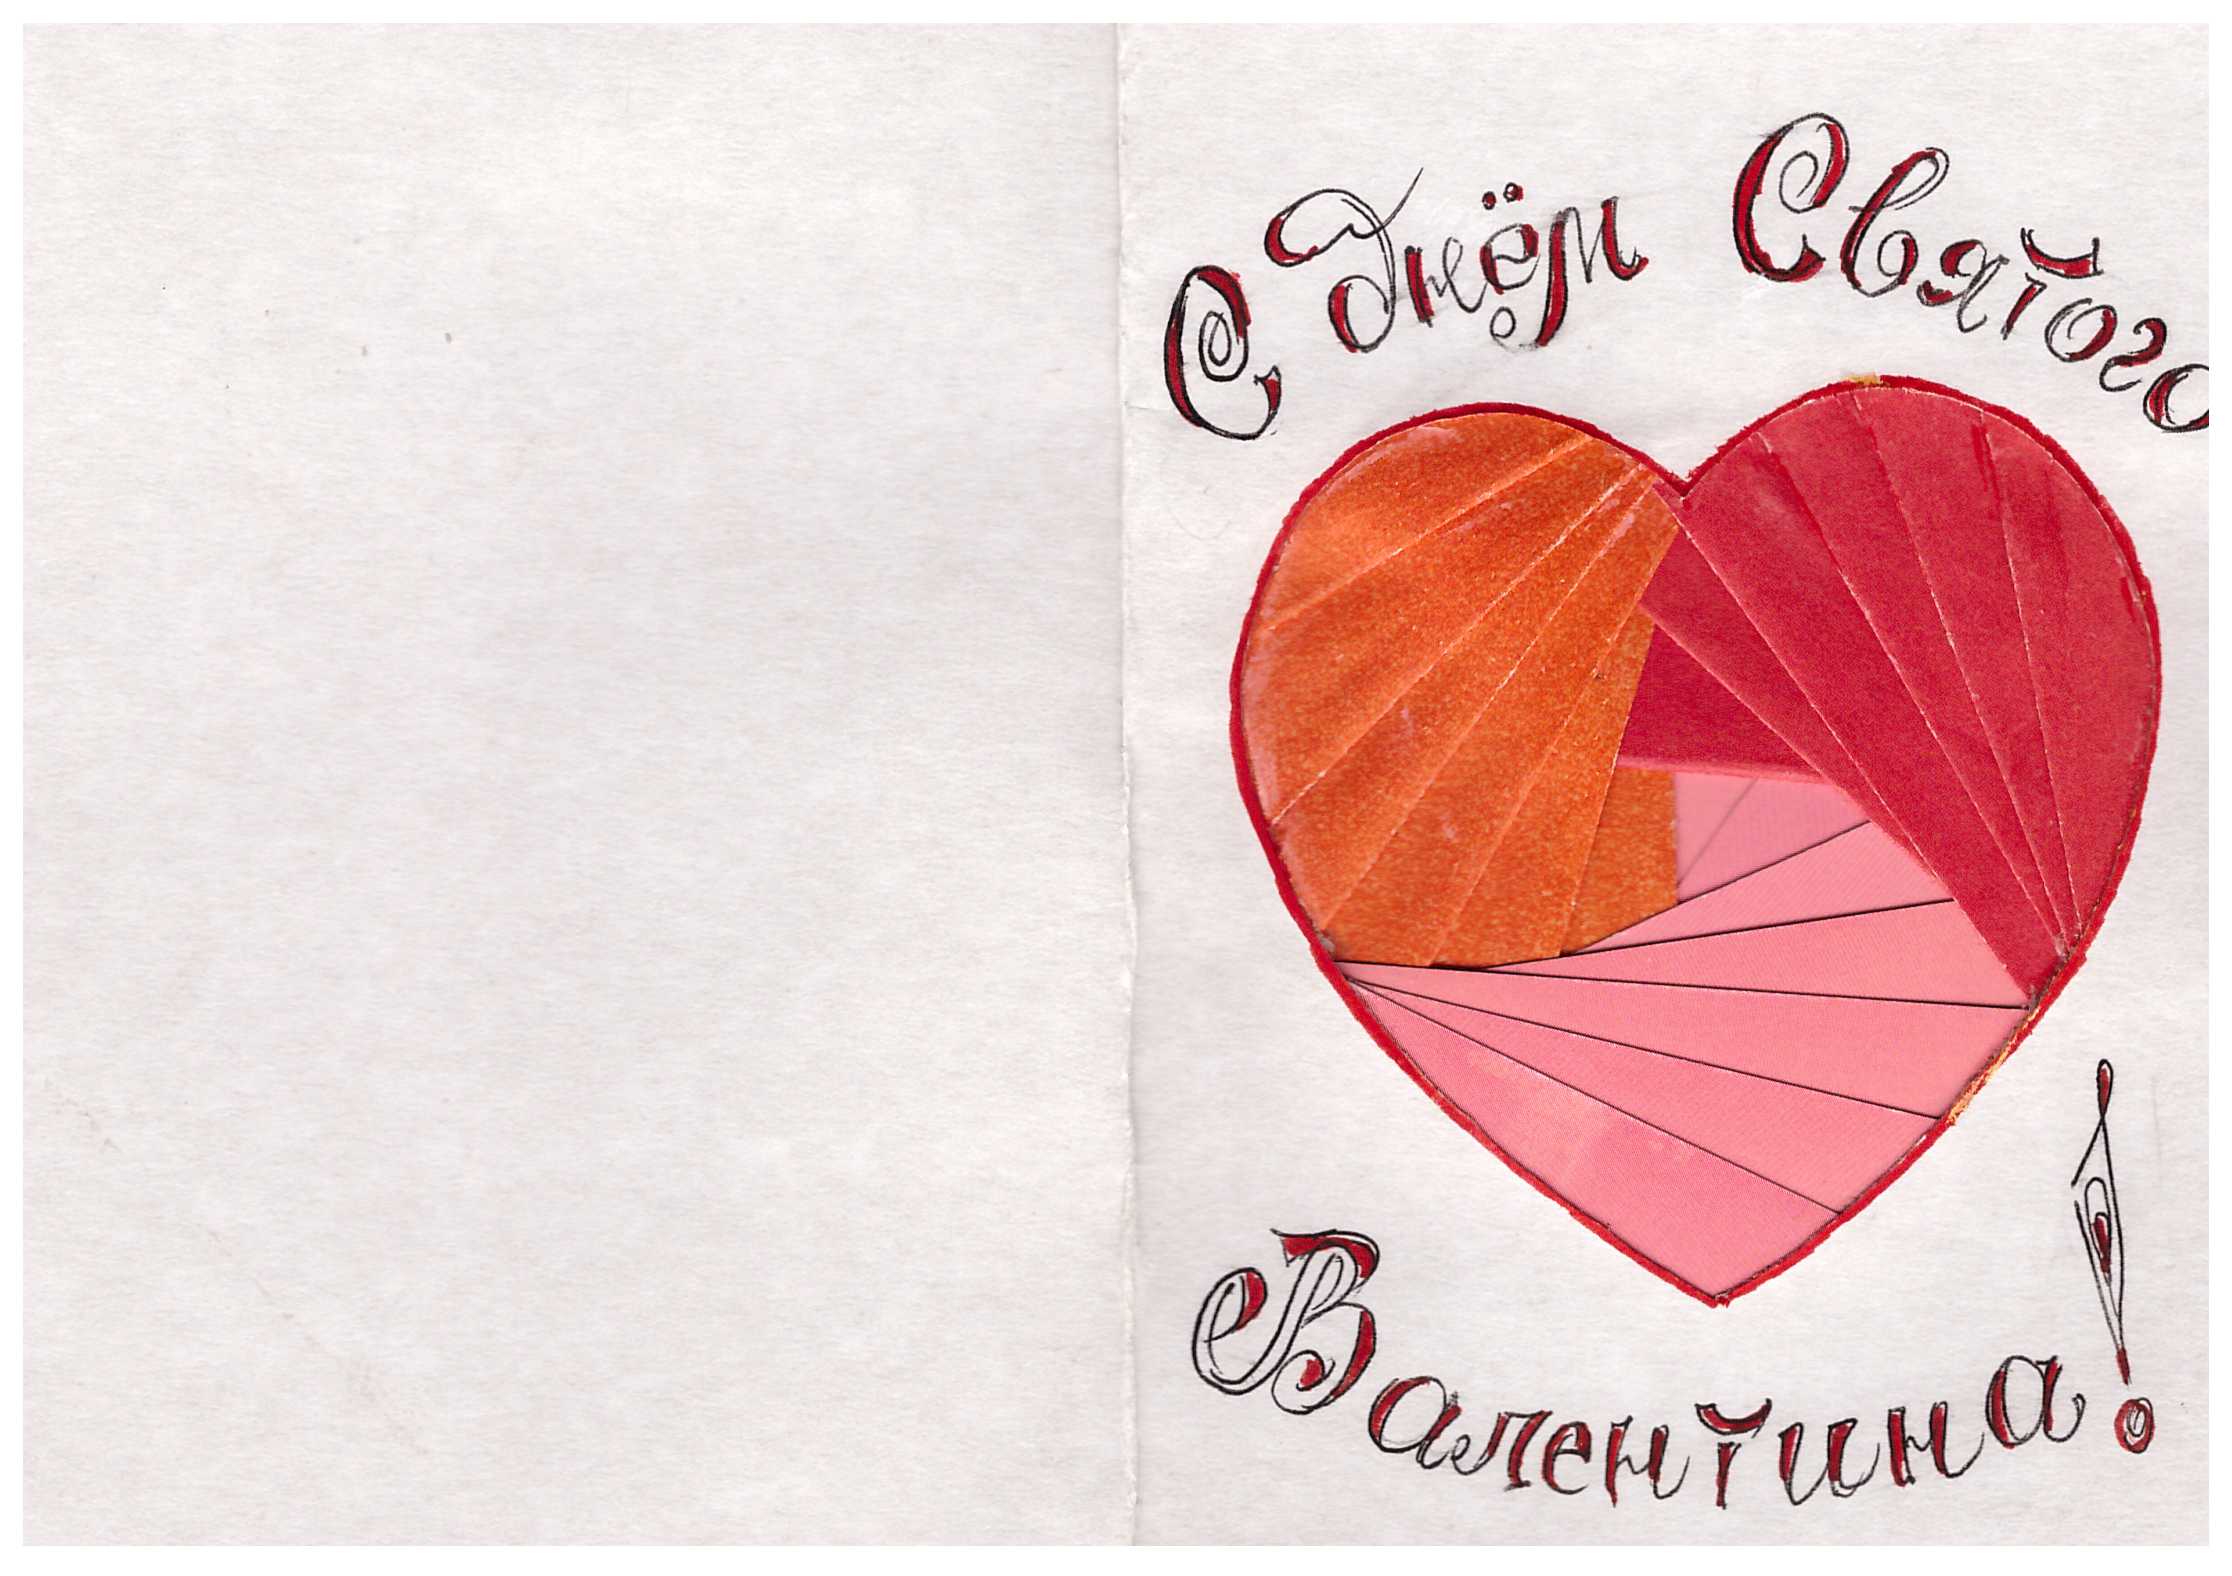 С Днём Святого
Валентина!